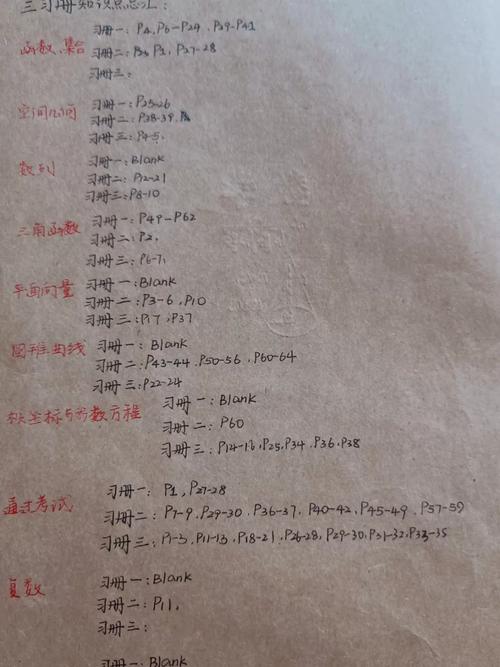 三习册知识点总汇：
习册一：P4, P6-P24 . P39-P41
函数、集合 习册二：P1, P27-28
习册三：
习册一：P25-26
空间几何 习册二：P38-39,
习册三：P4-5,
习册一：Blank
数列 习册二：P12-21
习册三：P8-10
习册一：P49-P62
三角函数 习册二：P2,
习册三：P6-7,
平面向量 习册一：Blank
习册二：P3-6, P10
习册三：P17, P37
圆锥曲线 习册一：Blank
习册二：P43-44, P50-56, P60-64
习册三：P22-24
习册一：Blank
极坐标与参数方程 习册二：P60
习册三：P14-16, P25, P34, P36, P38
习册一：P1, P27-28
通过考试 习册二：P7-9, P29-30, P36-37, P40-42, P45-49, P57-59
习册三：P1-3, P11-13, P18-21, P26-28, P29-30, P31-32, P33-35
习册一：Blank
复数 习册二：P11,
习册三：
习册一：Blank